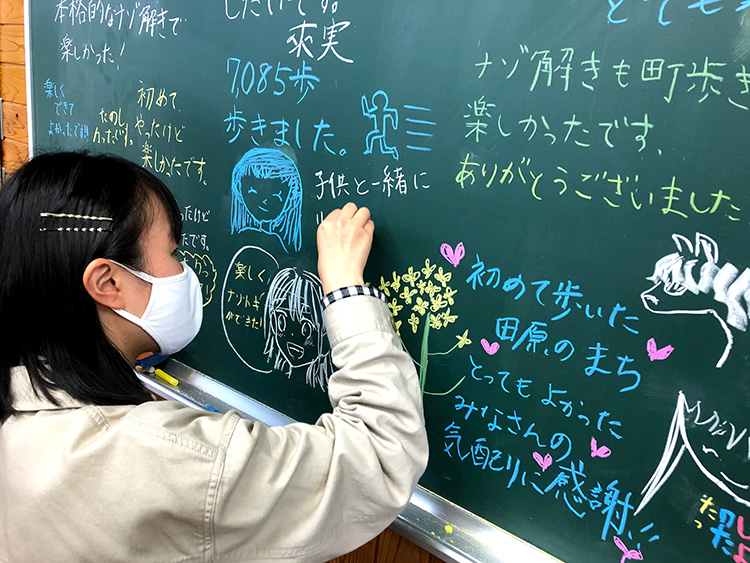 本格的なナゾ解きで
楽しかった!
楽しく
できて
よかったです!!
たのし
初めて、
やったけど
楽しかたです。
したいです。
爽実
7,085歩
歩きました。
子供と一緒に
楽しく
ナゾトキ
ができた!
とても
ナゾ解きも町歩き
楽しかったです、
ありがとうございました
初めて歩いた
田原のまち
とっても よかった
みなさんの
気配りに感謝!!